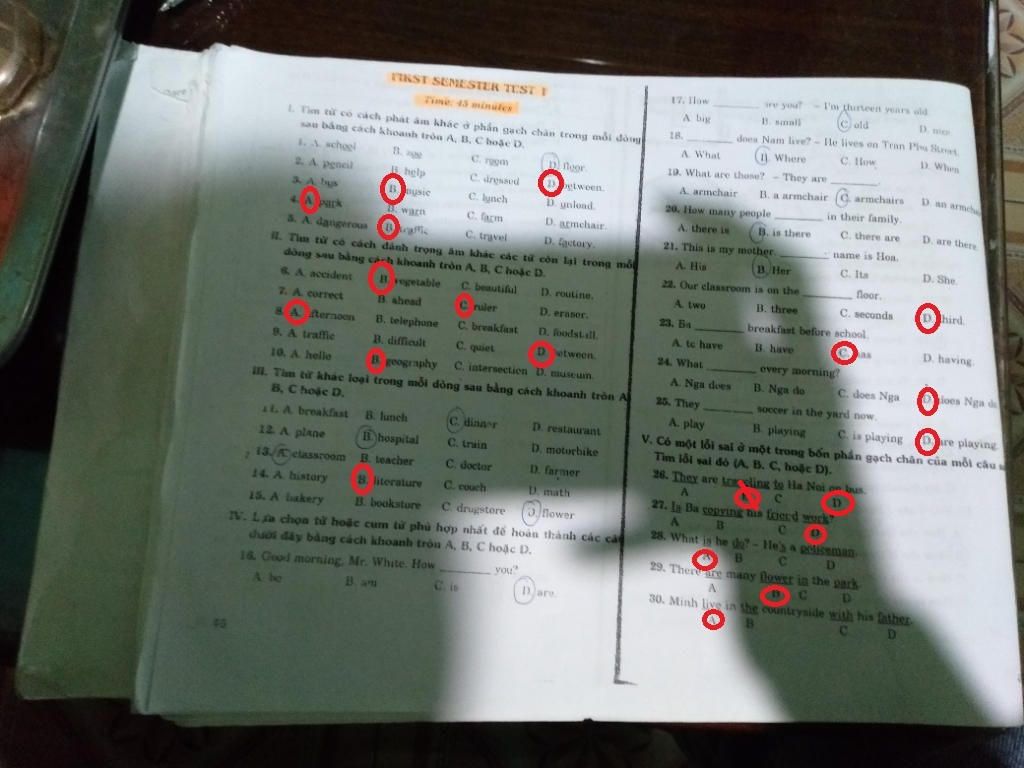 FIRST SEMESTER TEST 1
Time: 45 minutes
I. Tìm từ có cách phát âm khác ở phần gạch chân trong mỗi dòng
sau bằng cách khoanh tròn A, B, C hoặc D.
1. A. school B. zoo C. room D. floor.
2. A. pencil B. help C. dressed D. between.
3. A. bus B. music C. lunch D. unload.
4. A. park B. warn C. farm D. armchair.
5. A. dangerous B. traffic C. travel D. factory.
II. Tìm từ có cách đánh trọng âm khác các từ còn lại trong mỗi
dòng sau bằng cách khoanh tròn A, B, C hoặc D.
6. A. accident B. vegetable C. beautiful D. routine.
7. A. correct B. ahead C. ruler D. eraser.
8. A. afternoon B. telephone C. breakfast D. foodstall.
9. A. traffic B. difficult C. quiet D. between.
10. A. hello B. geography C. intersection D. museum.
III. Tìm từ khác loại trong mỗi dòng sau bằng cách khoanh tròn A,
B, C hoặc D.
11. A. breakfast B. lunch C. dinner D. restaurant
12. A. plane B. hospital C. train D. motorbike
13. A. classroom B. teacher C. doctor D. farmer
14. A. history B. literature C. couch D. math
15. A bakery B. bookstore C. drugstore D. flower
IV. Lựa chọn từ hoặc cụm từ phù hợp nhất để hoàn thành các câu
dưới đây bằng cách khoanh tròn A, B, C hoặc D.
16. Good morning, Mr. White. How ________ you?
A. be B. am C. is D. are.
46
17. How ________ are you? – I'm thirteen years old.
A. big B. small C. old D. nice
18. ________ does Nam live? – He lives on Tran Phu Street.
A. What B. Where C. How D. When
19. What are those? – They are ________.
A. armchair B. a armchair C. armchairs D. an armchair
20. How many people ________ in their family.
A. there is B. is there C. there are D. are there
21. This is my mother. ________ name is Hoa.
A. His B. Her C. Its D. She.
22. Our classroom is on the ________ floor.
A. two B. three C. seconds D. third.
23. Ba ________ breakfast before school.
A. to have B. have C. has D. having.
24. What ________ every morning?
A. Nga does B. Nga do C. does Nga D. does Nga do
25. They ________ soccer in the yard now.
A. play B. playing C. is playing D. are playing.
V. Có một lỗi sai ở một trong bốn phần gạch chân của mỗi câu sau
Tìm lỗi sai đó (A, B, C, hoặc D).
26. They are traveling to Ha Noi on bus.
A C D
27. Is Ba copying his friend work?
A B C D
28. What is he do? – He's a policeman.
A B C D
29. There are many flower in the park
A B C D
30. Minh live in the countryside with his father.
A B C D